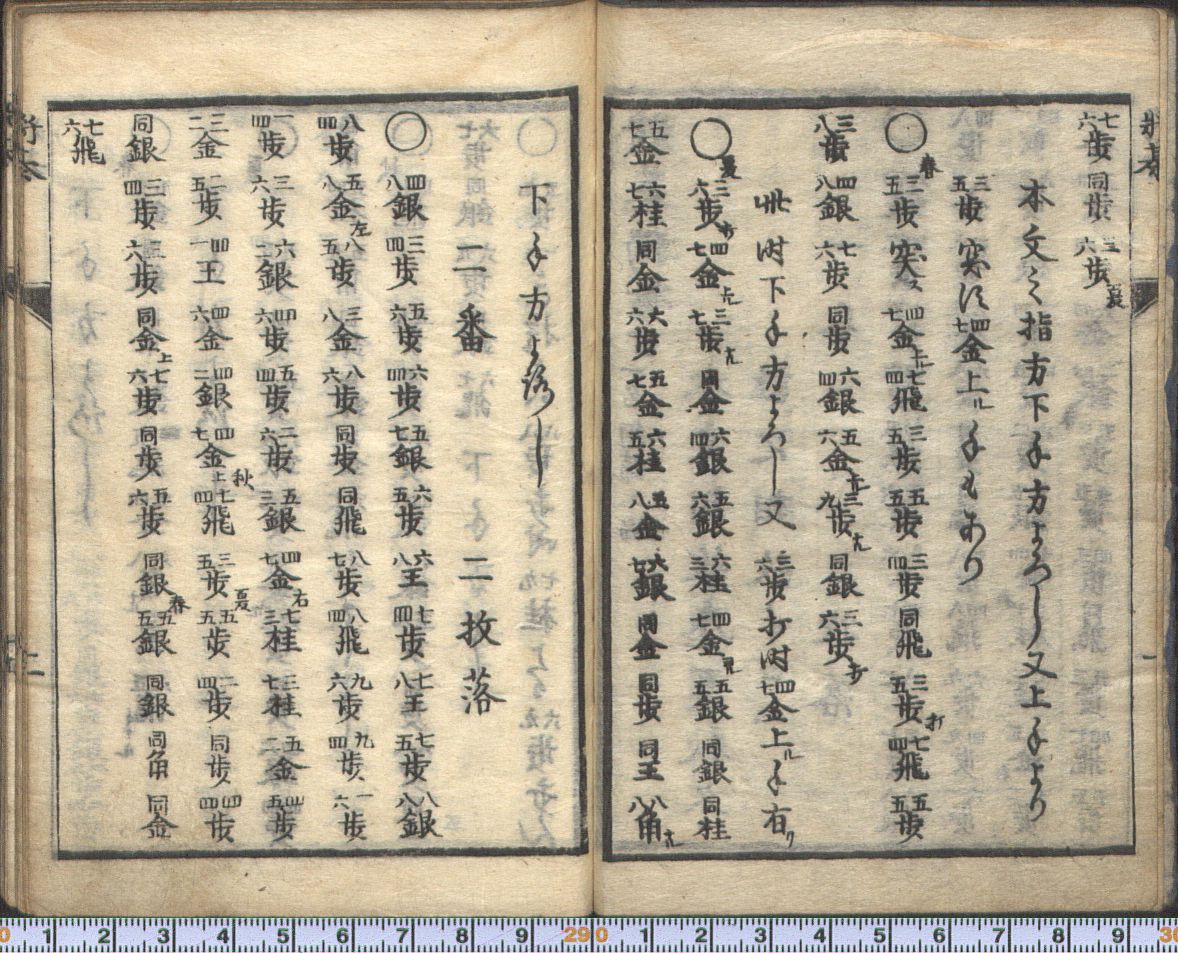 七六歩 同歩 三六歩 夏
本文之指方下手方よろし又上手より
三五歩 突ば 四七金上ル手もあり
◯ 春 二五歩 突ス 四七金 七四飛 三五歩 五五歩 三四歩 同飛 三五歩打 七四飛 五五歩
三八歩 四八銀 七六歩 同歩 六四銀 五六金 三九歩 同銀 三六歩打
此時下手方よろし又 三六歩打時 四七金上ル手有リ
◯ 夏 三六歩打 四七金 三七歩 同金 六四銀 五六銀 六三桂 四七金 五五銀 同銀 同桂
五七金 六七桂 同金 六六歩 五七金 六五桂 五八金 六七銀 同金 同歩 同王 八八角
下手方よろし
二番 二枚落
◯ 四八銀 三四歩 五六歩 六四歩 五七銀 六五歩 六八王 七四歩 七八王 七五歩 八八銀
八四歩 五八金左 八五歩 三八金 八六歩 同歩 同飛 八七歩 八四飛 九六歩 九四歩 一六歩
一四歩 三六歩 六二銀 四六歩 五四歩 二六歩 五三銀 四七金右 七三桂 三七桂 五二金 四五歩
三二金 二五歩 四一王 四六金 四二銀 四七金上 秋 七四飛 三五歩 夏 五五歩 二四歩 同歩 四四歩
同銀 二四歩 三六歩 同金上 七六歩 同歩 五六歩 同銀 春 五五銀 同銀 同角 同金
七六飛
将棊
一
将棊
二
0 1 2 3 4 5 6 7 8 9 29 0 1 2 3 4 5 6 7 8 9 30